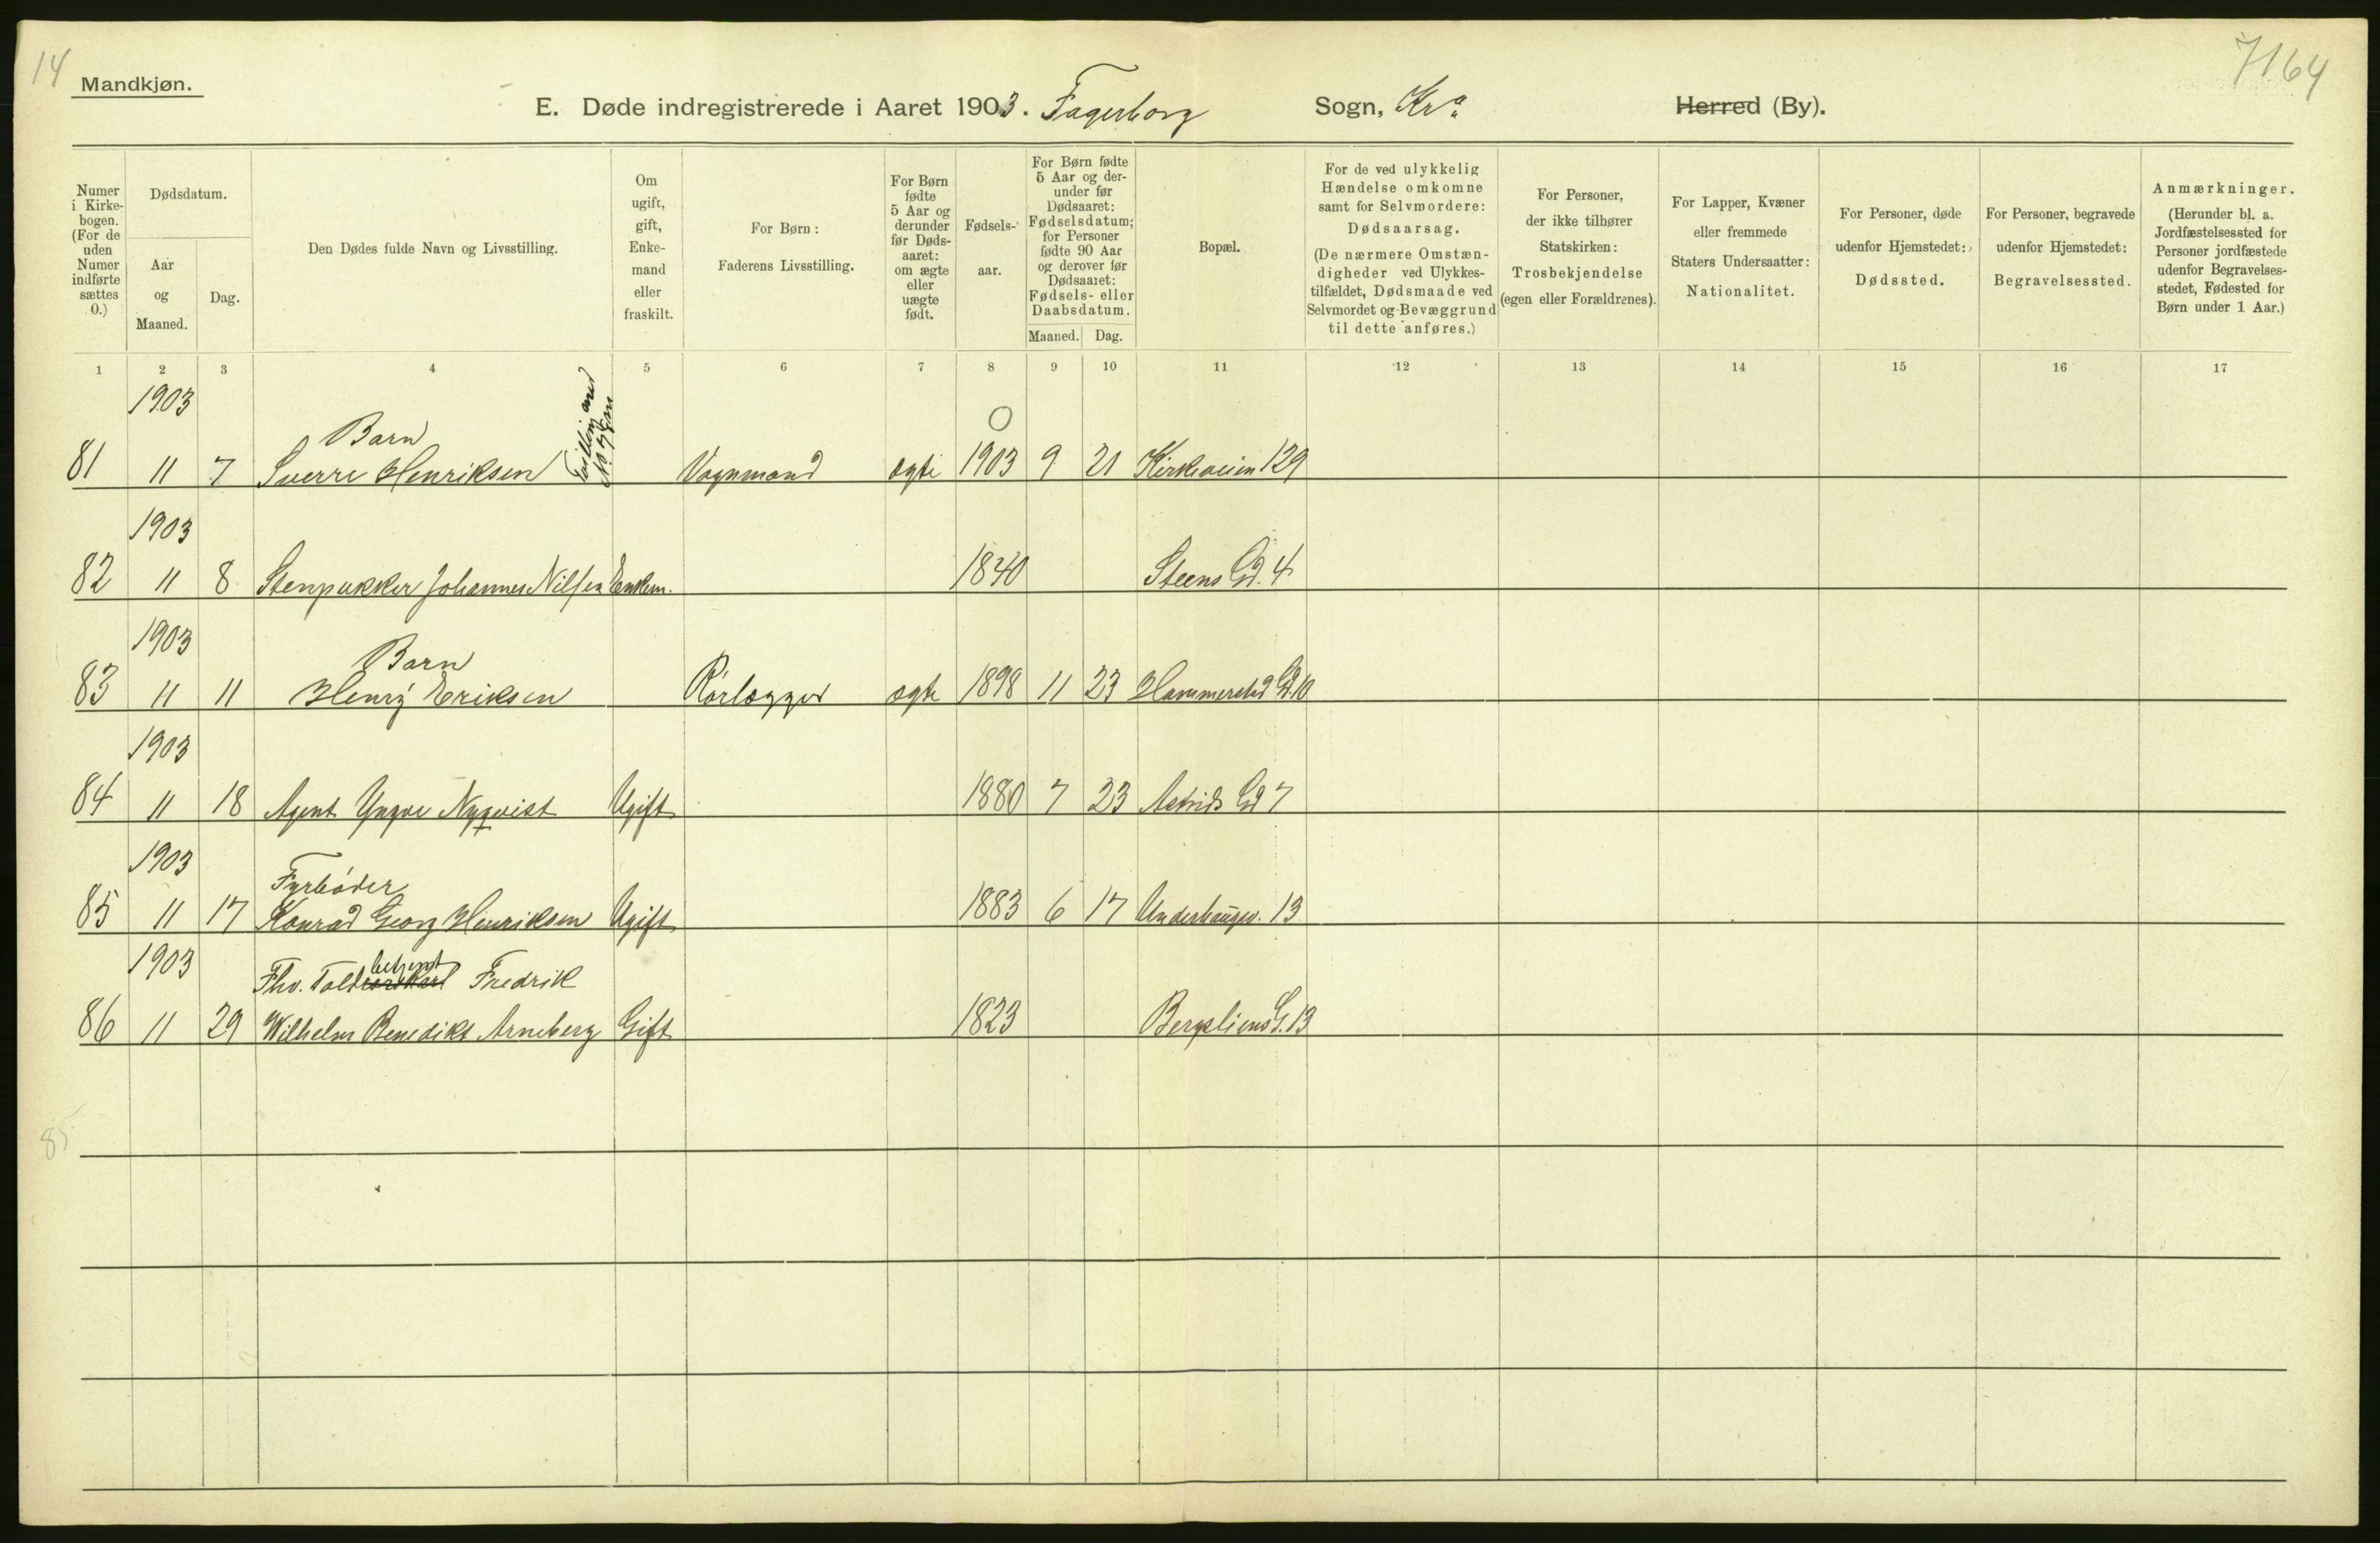 14
7164
Mandkjøn.
E. Døde indregistrerede i Aaret 1903. Fagerborg Sogn, Kra Herred (By).
Numer i Kirkebogen. (For de uden Numer indførte sættes 0.)
Dødsdatum.
Aar og Maaned.
Dag.
Den Dødes fulde Navn og Livsstilling.
Om ugift, gift, Enkemand eller fraskilt.
For Børn: Faderens Livsstilling.
For Børn fødte 5 Aar og derunder før Dødsaaret: om ægte eller uægte født.
Fødselsaar.
For Børn fødte 5 Aar og derunder før Dødsaaret: Fødselsdatum; for Personer fødte 90 Aar og derover før Dødsaaret: Fødsels- eller Daabsdatum.
Maaned. Dag.
Bopæl.
For de ved ulykkelig Hændelse omkomne samt for Selvmordere: Dødsaarsag. (De nærmere Omstændigheder ved Ulykkestilfældet, Dødsmaade ved Selvmordet og Bevæggrund til dette anføres.)
For Personer, der ikke tilhører Statskirken: Trosbekjendelse (egen eller Forældrenes).
For Lapper, Kvæner eller fremmede Staters Undersaatter: Nationalitet.
For Personer, døde udenfor Hjemstedet: Dødssted.
For Personer, begravede udenfor Hjemstedet: Begravelsessted.
Anmærkninger. (Herunder bl. a. Jordfæstelsessted for Personer jordfæstede udenfor Begravelsesstedet, Fødested for Børn under 1 Aar.)
1 2 3 4 5 6 7 8 9 10 11 12 13 14 15 16 17
1903 Barn Tvilling med 0
81 11 7 Sverre Henriksen Vognmand ægte 1903 9 21 Kirkeveien 129
1903
82 11 8 Stenpukker Johannes Nilsen Enkem. 1840 Steens Gd. 4
1903 Barn
83 11 11 Henry Eriksen Rörlægger ægte 1898 11 23 Hammerstad Gd. 10
1903
84 11 18 Agent Yngve Nyqvist Ugift 1880 7 23 Astrids Gd 7
1903 Fyrbøder
85 11 17 Konrad Georg Henriksen Ugift 1883 6 17 Underhaugsv. 13
1903 Fhv. Told betjent Fredrik
86 11 29 Wilhelm Benedikt Arneberg Gift 1823 Bergsliens G. 13
85